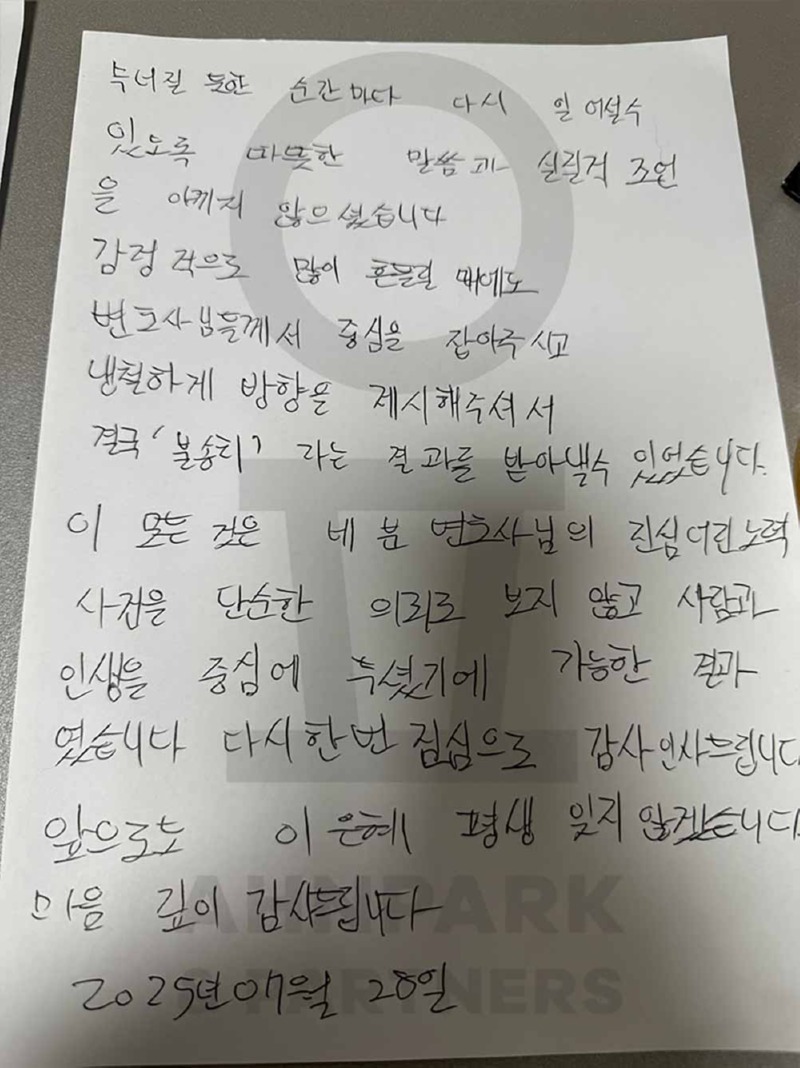 무너질 듯한 순간마다 다시 일어설수
있도록 따뜻한 말씀과 실질적 조언
을 아끼지 않으셨습니다
감정적으로 많이 흔들릴 때에도
변호사님들께서 중심을 잡아주시고
냉철하게 방향을 제시해주셔서
결국 '불송치' 라는 결과를 받아낼수 있었습니다.
이 모든 것은 네 분 변호사님의 진심어린노력
사건을 단순한 의뢰로 보지 않고 사람과
인생을 중심에 두셨기에 가능한 결과
였습니다 다시한번 진심으로 감사인사드립니다
앞으로도 이 은혜 평생 잊지 않겠습니다
마음 깊이 감사드립니다
2025년 07월 28일
AHNPARK
& PARTNERS